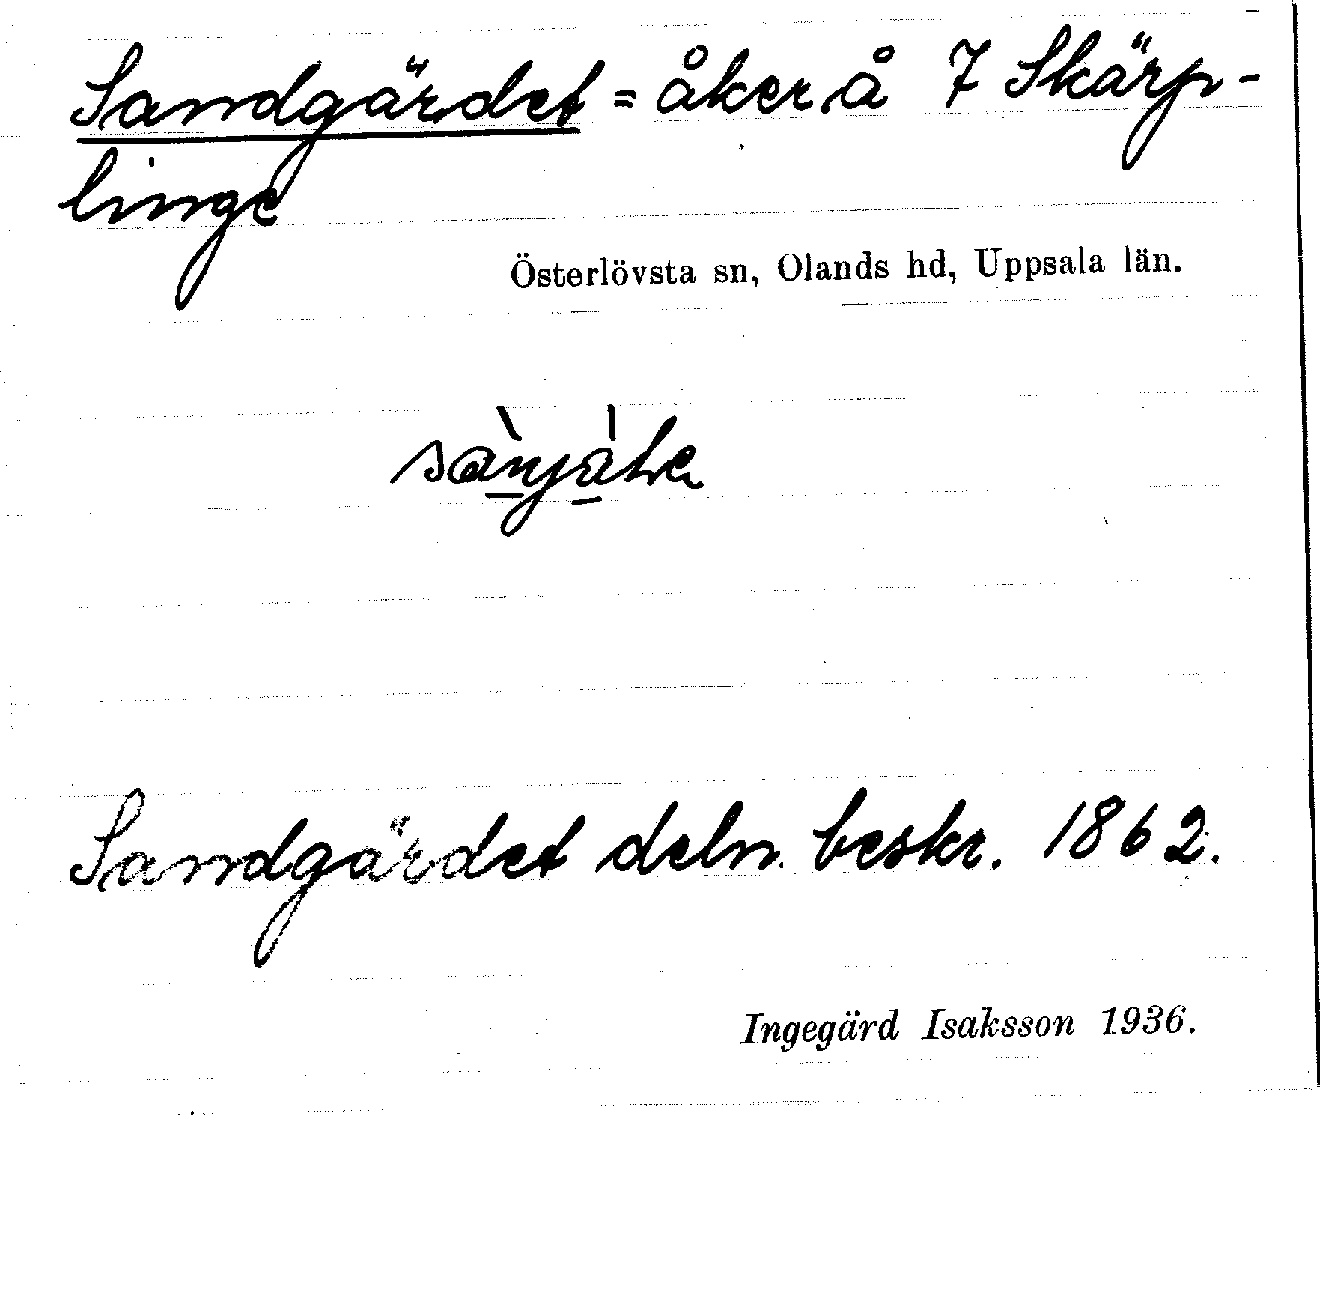 Sandgärdet = åker å 7 Skärp-
linge
Österlövsta sn, Olands hd, Uppsala län.
Sandgärdet deln. beskr. 1862.
Ingegärd Isaksson 1936.